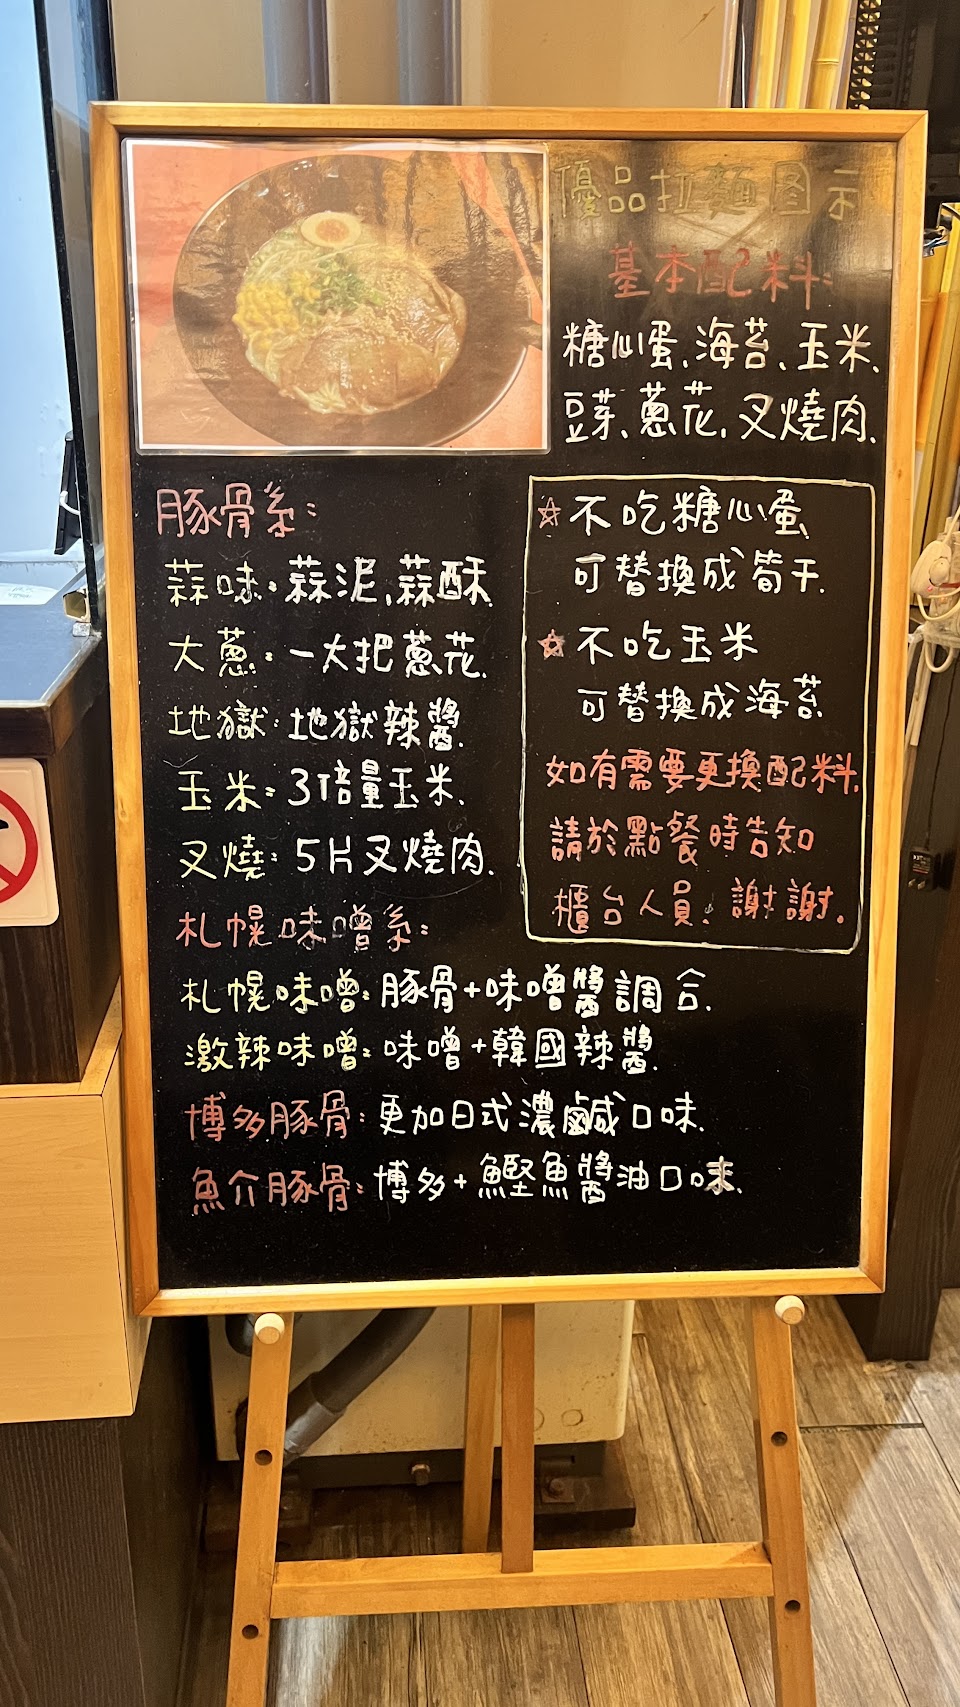 優品拉麵图示
基本配料:
糖心蛋、海苔、玉米、
豆芽、蔥花、叉燒肉.
豚骨系:
蒜味:蒜泥、蒜酥.
大蔥:一大把蔥花.
地獄:地獄辣醬.
玉米:3倍量玉米.
叉燒:5片叉燒肉.
札幌味噌系:
札幌味噌:豚骨+味噌醬調合.
激辣味噌:味噌+韓國辣醬.
博多豚骨:更加日式濃鹹口味.
魚介豚骨:博多+鰹魚醬油口味.
☆不吃糖心蛋
可替換成筍干.
☆不吃玉米
可替換成海苔
如有需要更換配料.
請於點餐時告知
櫃台人員,謝謝。